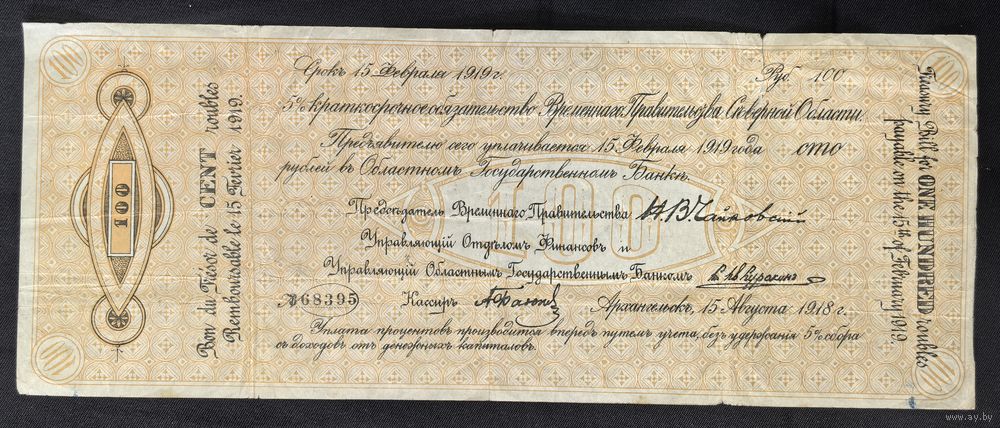 100
100
Bon du Trésor de CENT roubles
Remboursable le 15 Fevrier 1919.
100
Срокъ 15 Февраля 1919 г. Руб. 100
5% краткосрочное обязательство Временнаго Правительства Сѣверной Области.
Предъявителю сего уплачивается 15 Февраля 1919 года сто
рублей въ Областномъ Государственномъ Банкѣ.
100
Предсѣдатель Временнаго Правительства Н.В. Чайковскій
Управляющій Отдѣломъ Финансовъ и
Управляющій Областнымъ Государственнымъ Банкомъ Куракинъ
№ 68395 Кассиръ Архангельскъ, 15 Августа 1918 г.
Уплата процентовъ производится впередъ путемъ учета, безъ удержания 5% сбора
съ доходовъ отъ денежныхъ капиталовъ.
Treasury Bill for ONE HUNDRED roubles
payable on the 15th of February 1919.
100
100
100
www.ay.by